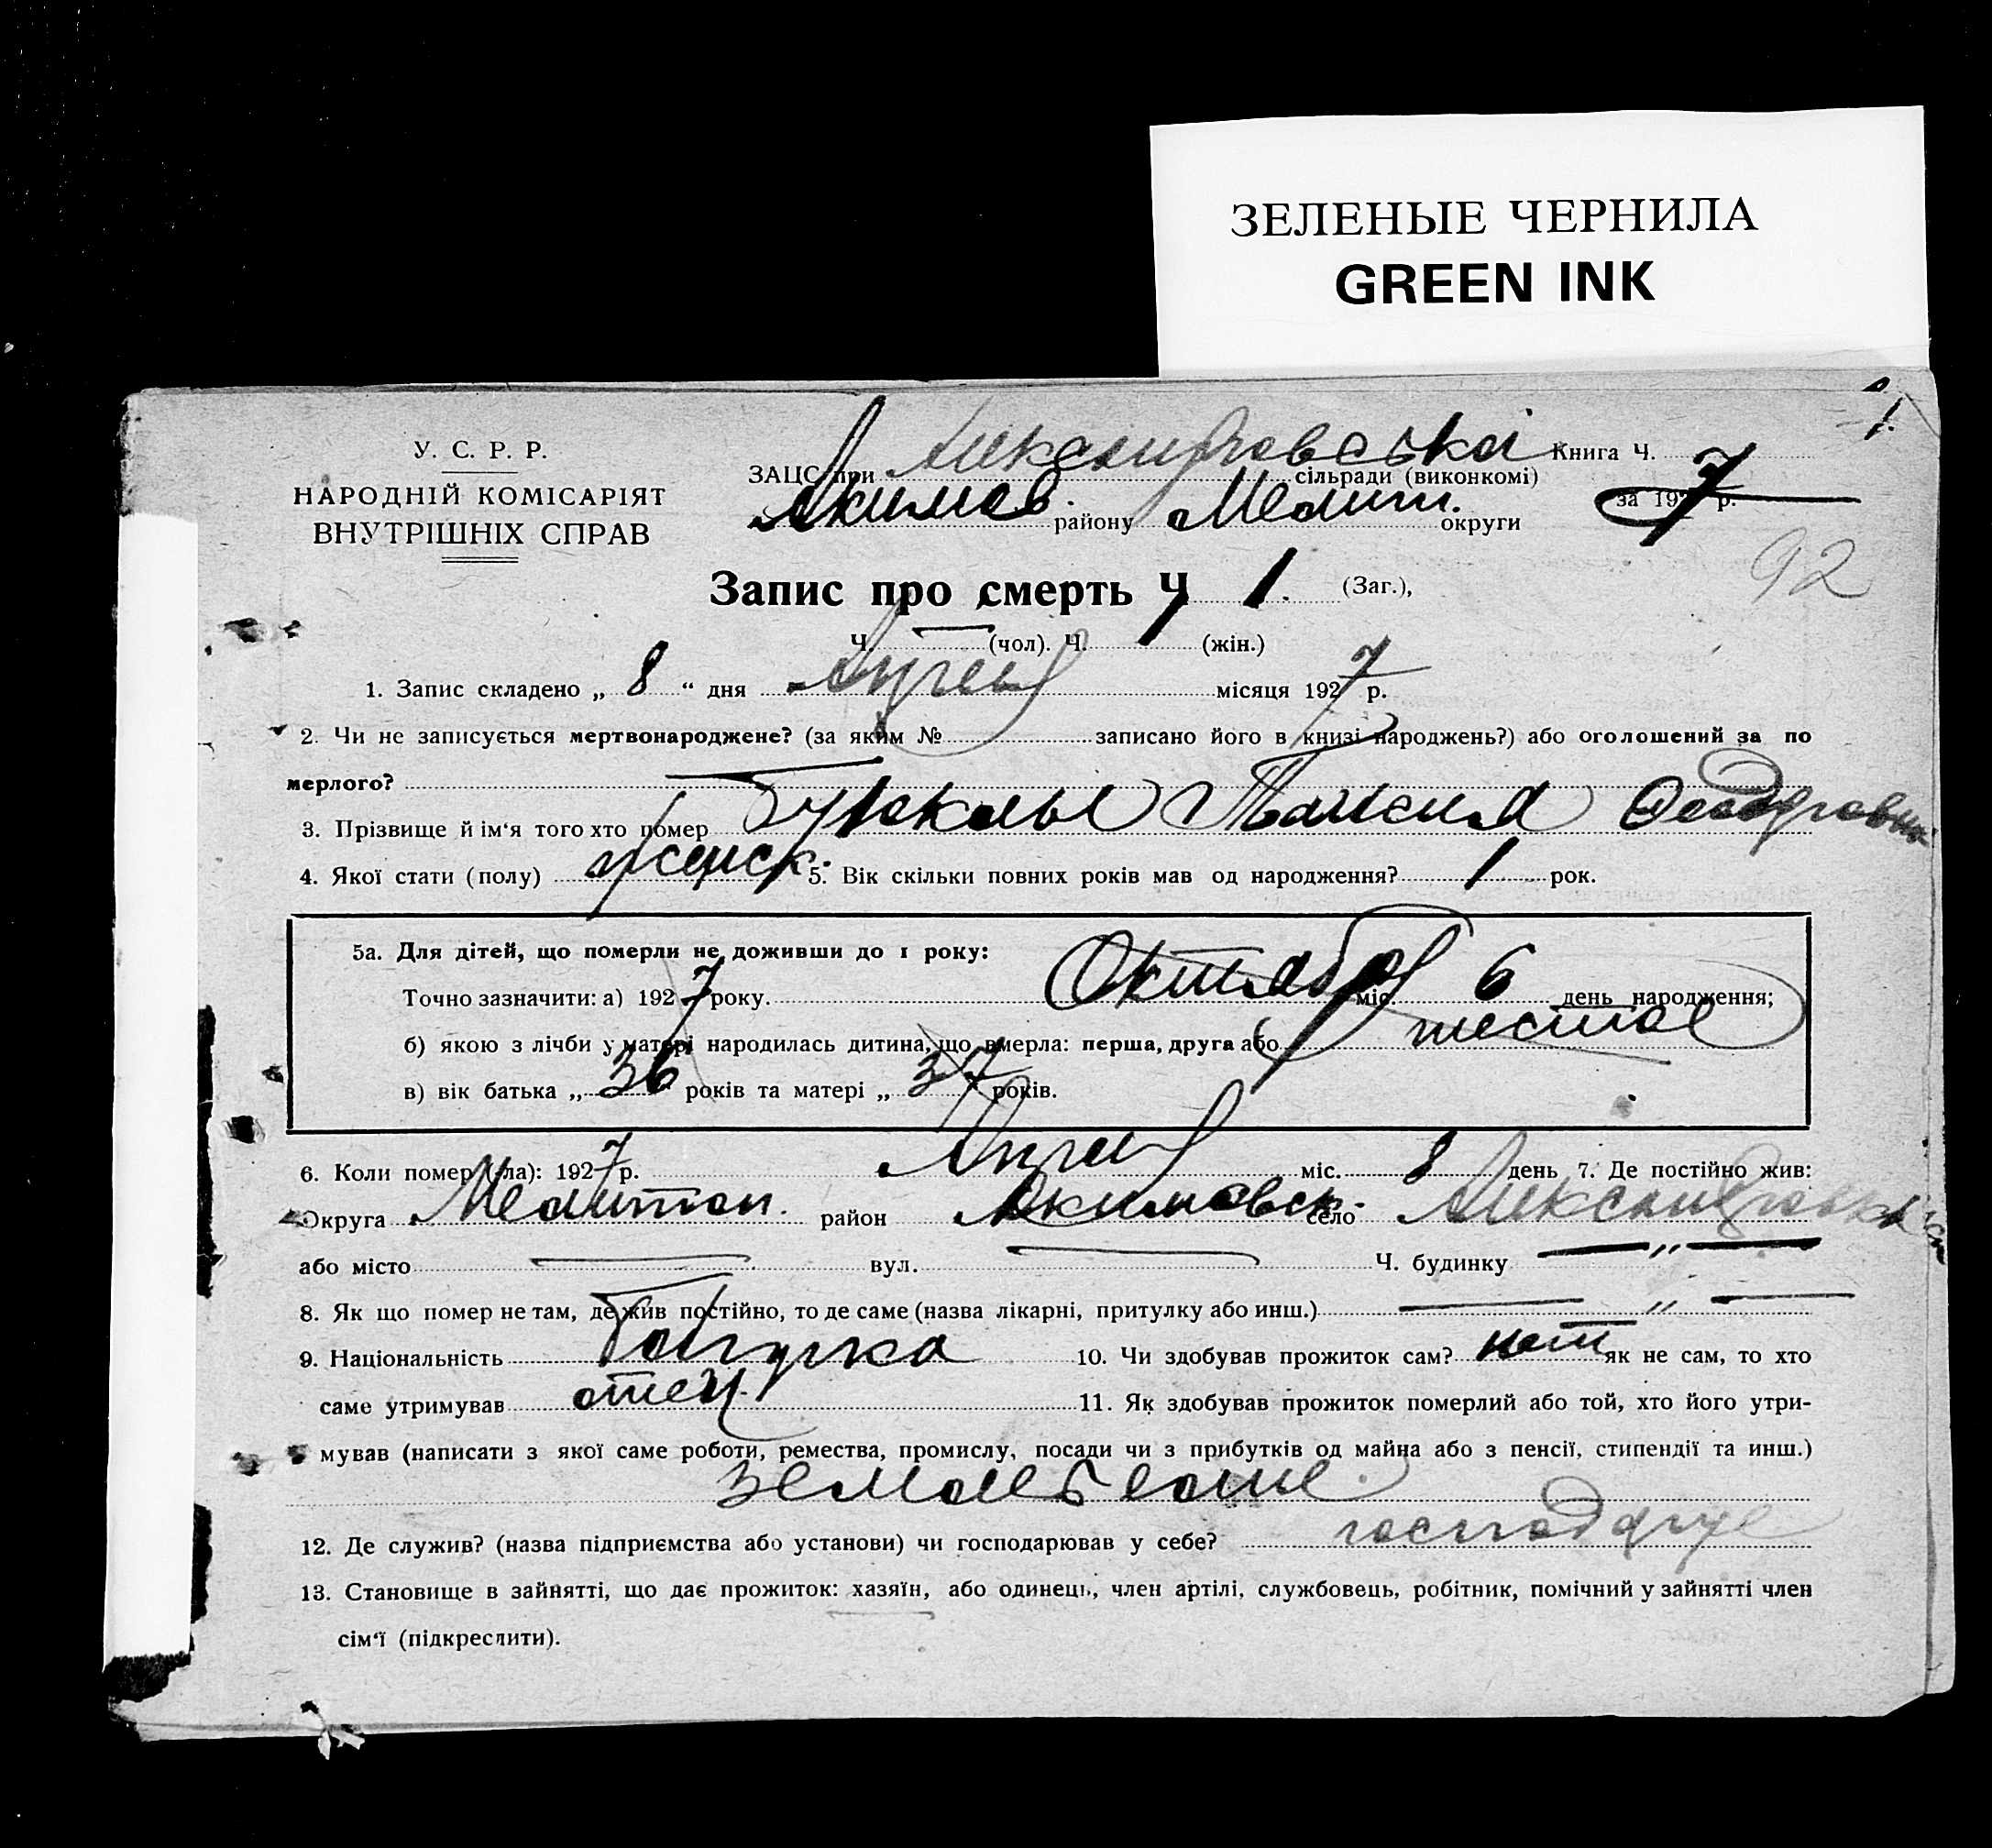 ЗЕЛЕНЫЕ ЧЕРНИЛА
GREEN INK
1.
У. С. Р. Р.
НАРОДНІЙ КОМІСАРІЯТ
ВНУТРІШНІХ СПРАВ
ЗАЦС при Александровській сільради (виконкомі) Книга Ч.
Якимов. району Мелит. округи за 1927 р.
92
Запис про смерть Ч 1. (Заг.),
Ч. — (чол). Ч. 1 (жін.)
1. Запис складено „ 8 “ дня місяця 1927 р.
2. Чи не записується мертвонароджене? (за яким № записано його в книзі народжень?) або оголошений за по
мерлого? —
3. Прізвище й ім‘я того хто помер Таисия Феодоровна
4. Якої стати (полу) женск. 5. Вік скільки повних років мав од народження? 1 рок.
5а. Для дітей, що померли не доживши до 1 року:
Точно зазначити: а) 1927 року. Октября міс. 6 день народження;
б) якою з лічби у матері народилась дитина, що вмерла: перша, друга або шестая
в) вік батька „ 36 “ років та матері „ 37 років.
6. Коли помер (-ла): 1927 р. міс. 8 день 7. Де постійно жив:
Округа Мелитоп. район Якимовск. село Александровка
або місто — вул. — Ч. будинку — „ —
8. Як що помер не там, де жив постійно, то де саме (назва лікарні, притулку або инш.) — „ —
9. Національність 10. Чи здобував прожиток сам? нет як не сам, то хто
саме утримував отец. 11. Як здобував прожиток померлий або той, хто його утри-
мував (написати з якої саме роботи, ремества, промислу, посади чи з прибутків од майна або з пенсії, стипендії та инш.)
12. Де служив? (назва підприємства або установи) чи господарював у себе?
13. Становище в зайнятті, що дає прожиток: хазяїн, або одинець, член артілі, службовець, робітник, помічний у зайнятті член
сім‘ї (підкреслити).